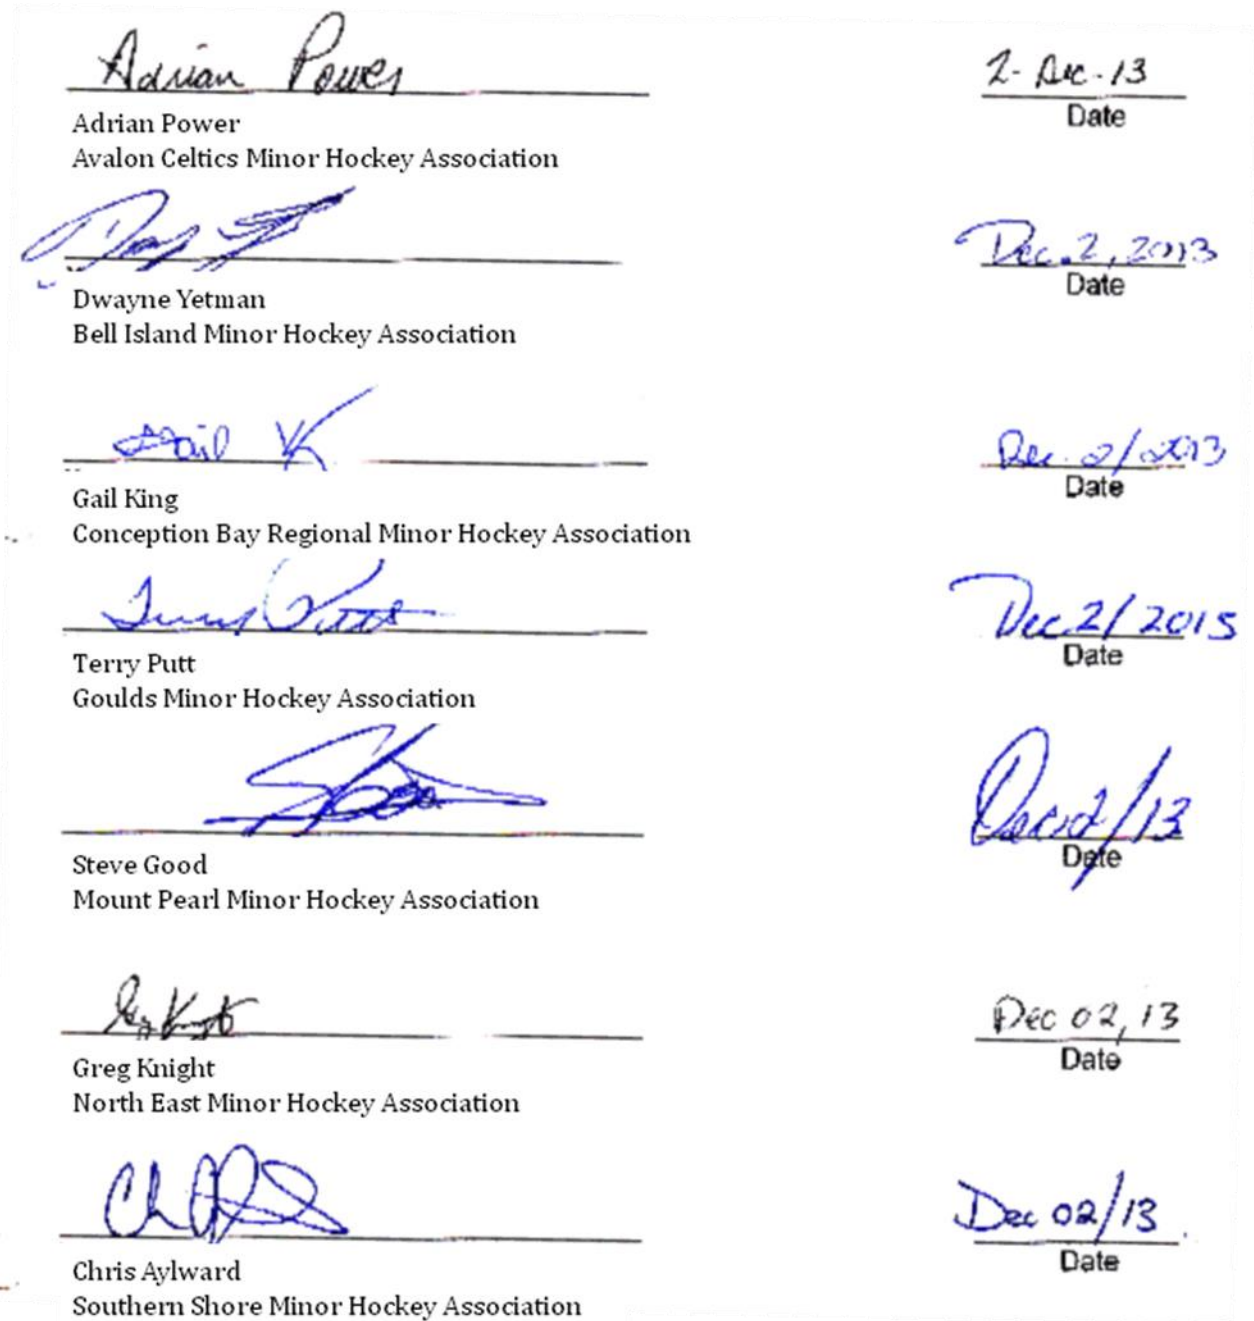 Adrian Power 2-Dec-13
Date
Adrian Power
Avalon Celtics Minor Hockey Association
Dec. 2, 2013
Date
Dwayne Yetman
Bell Island Minor Hockey Association
Gail K Dec. 2/2013
Date
Gail King
Conception Bay Regional Minor Hockey Association
Terry Putt Dec 2/2015
Date
Terry Putt
Goulds Minor Hockey Association
Dec 2/13
Date
Steve Good
Mount Pearl Minor Hockey Association
Greg Knight Dec 02, 13
Date
Greg Knight
North East Minor Hockey Association
Dec 02/13
Date
Chris Aylward
Southern Shore Minor Hockey Association